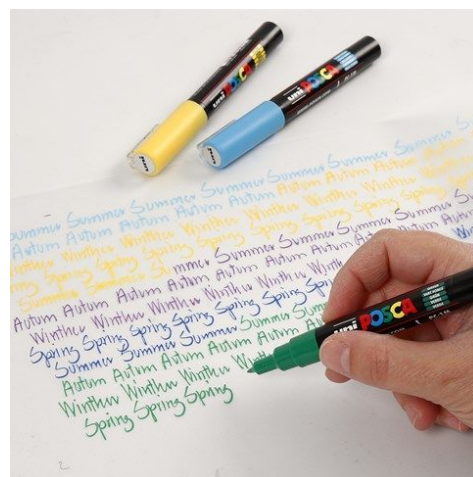 uni POSCA
uni POSCA
Summer Summer Summer Summer Summer
Autum Autum Autum Autum Autum Autum Autum
Winther Winther Winther Winther Winther
Spring Spring Spring Spring Spring Spring Spring
Summer Summer Summer Summer Summer Summer
Autum Autum Autum Autum Autum Autum Autum
Winther Winther Winther Winther Winther
Spring Spring Spring Spring Spring Spring
Summer Summer Summer Summer Summer
Autum Autum Autum Autum Autum
Winther Winther Winther
Spring Spring Spring
uni POSCA